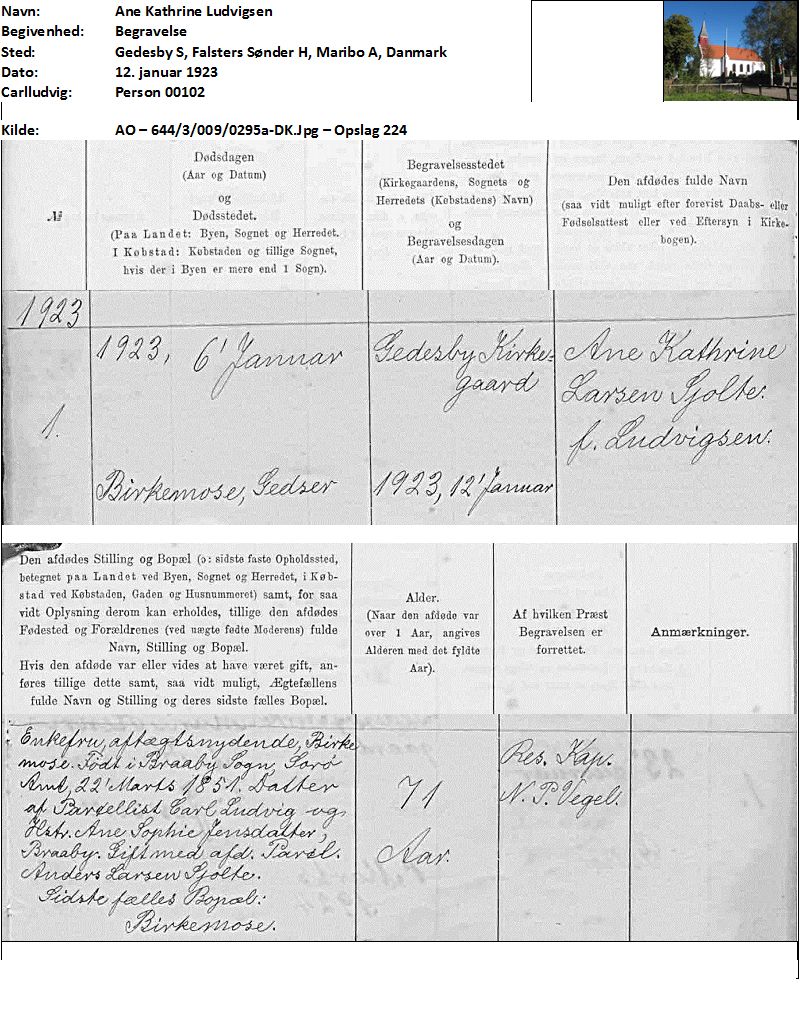 Navn: Ane Kathrine Ludvigsen
Begivenhed: Begravelse
Sted: Gedesby S, Falsters Sønder H, Maribo A, Danmark
Dato: 12. januar 1923
Carlludvig: Person 00102
Kilde: AO – 644/3/009/0295a-DK.Jpg – Opslag 224
№
Dødsdagen
(Aar og Datum)
og
Dødsstedet.
(Paa Landet: Byen, Sognet og Herredet.
I Købstad: Købstaden og tillige Sognet,
hvis der i Byen er mere end 1 Sogn).
Begravelsesstedet
(Kirkegaardens, Sognets og
Herredets (Købstadens) Navn)
og
Begravelsesdagen
(Aar og Datum).
Den afdødes fulde Navn
(saa vidt muligt efter forevist Daabs- eller
Fødselsattest eller ved Eftersyn i Kirke-
bogen).
1923
1.
1923, 6' Januar
Birkemose, Gedser
Gedesby Kirke-
gaard
1923, 12' Januar
Ane Kathrine
Larsen Sjolte.
f. Ludvigsen.
Den afdødes Stilling og Bopæl (ɔ: sidste faste Opholdssted,
betegnet paa Landet ved Byen, Sognet og Herredet, i Køb-
stad ved Købstaden, Gaden og Husnummeret) samt, for saa
vidt Oplysning derom kan erholdes, tillige den afdødes
Fødested og Forældrenes (ved uægte fødte Moderens) fulde
Navn, Stilling og Bopæl.
Hvis den afdøde var eller vides at have været gift, an-
føres tillige dette samt, saa vidt muligt, Ægtefællens
fulde Navn og Stilling og deres sidste fælles Bopæl.
Alder.
(Naar den afdøde var
over 1 Aar, angives
Alderen med det fyldte
Aar).
Af hvilken Præst
Begravelsen er
forrettet.
Anmærkninger.
Enkefru, aftægtsnydende, Birke
mose. Født i Braaby Sogn, Sorø
Amt, 22' Marts 1851. Datter
af Parcellist Carl Ludvig og
Hstr. Ane Sophie Jensdatter,
Braaby. Gift med afd. Parcl.
Anders Larsen Sjolte.
Sidste fælles Bopæl:
Birkemose.
71
Aar.
Res. Kap.
N. P. Vegel.